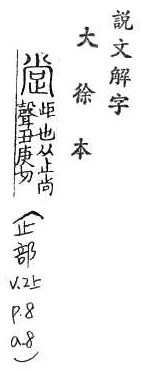 説文解字
大徐本
歫也从止尚
聲丑庚切
(止部
v.2上
p.8
a.8)